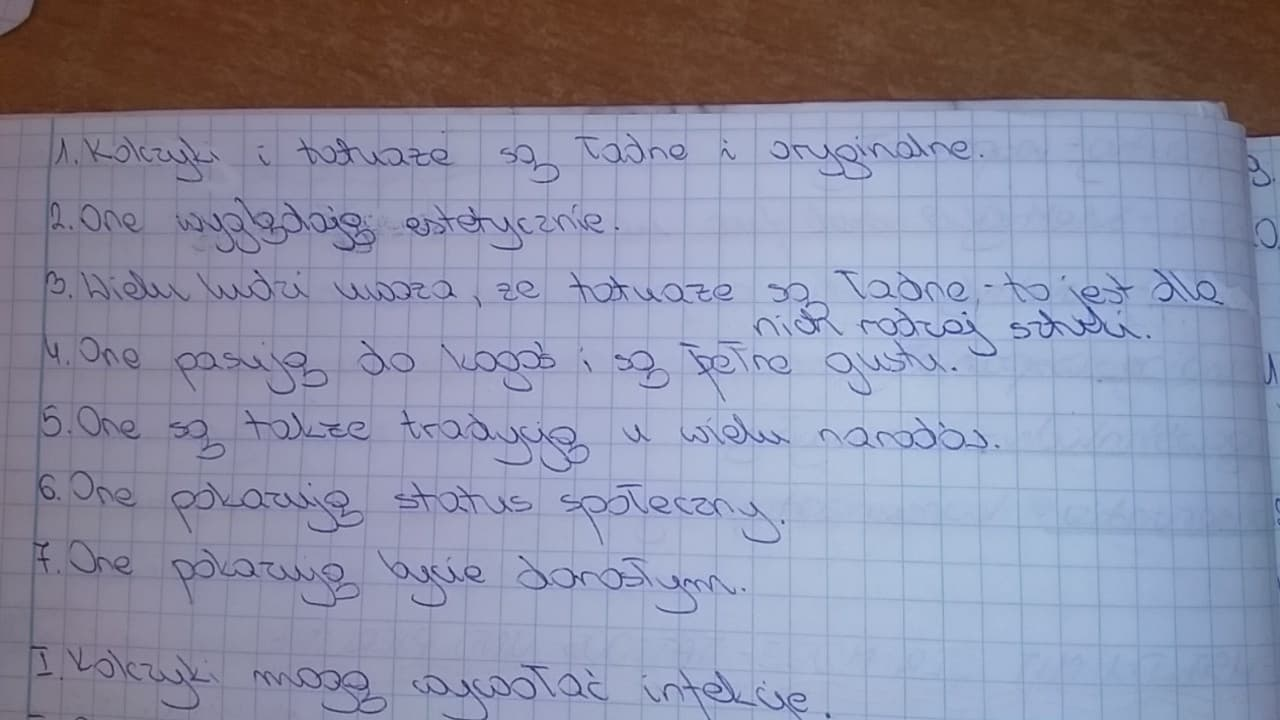 1. Kolczyki i tatuaże są ładne i oryginalne.
2. One wyglądają estetycznie.
3. Wielu ludzi uważa, że tatuaże są ładne, - to jest dla
nich rodzaj sztuki.
4. One pasują do kogoś i są pełne gustu.
5. One są także tradycją u wielu narodów.
6. One pokazują status społeczny.
7. One pokazują bycie dorosłym.
I. Kolczyki mogą wywołać infekcje.